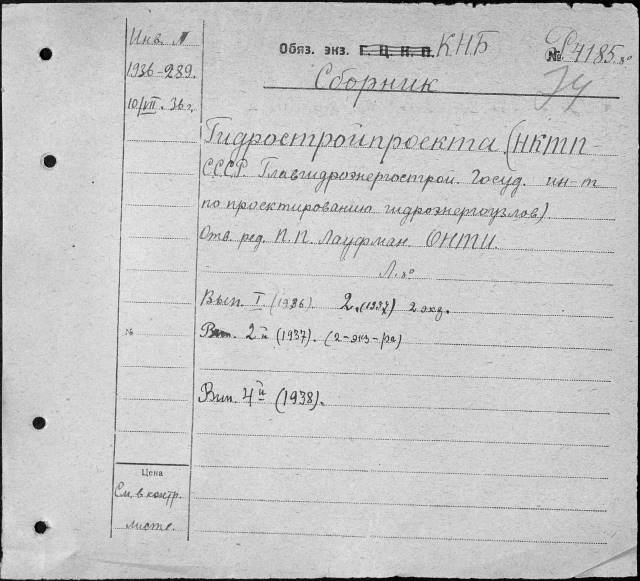 Инв. №
1936-289.
10/VII. 36 г.
Обяз. экз. Г.Ц.К.П. КНБ
№ Р4185.8°
Сборник
Гидростройпроекта (НКТП-
СССР. Главгидроэнергострой. Госуд. ин-т
по проектированию гидроэнергоузлов)
Отв. ред. П.П. Лауфман. ОНТИ.
Л. 8°
Вып. I. (1936). 2. (1937) 2 экз.
№
Вып. 2й (1937). (2-экз-ра)
Вып. 4й (1938).
Цена
См. в контр.
листе.